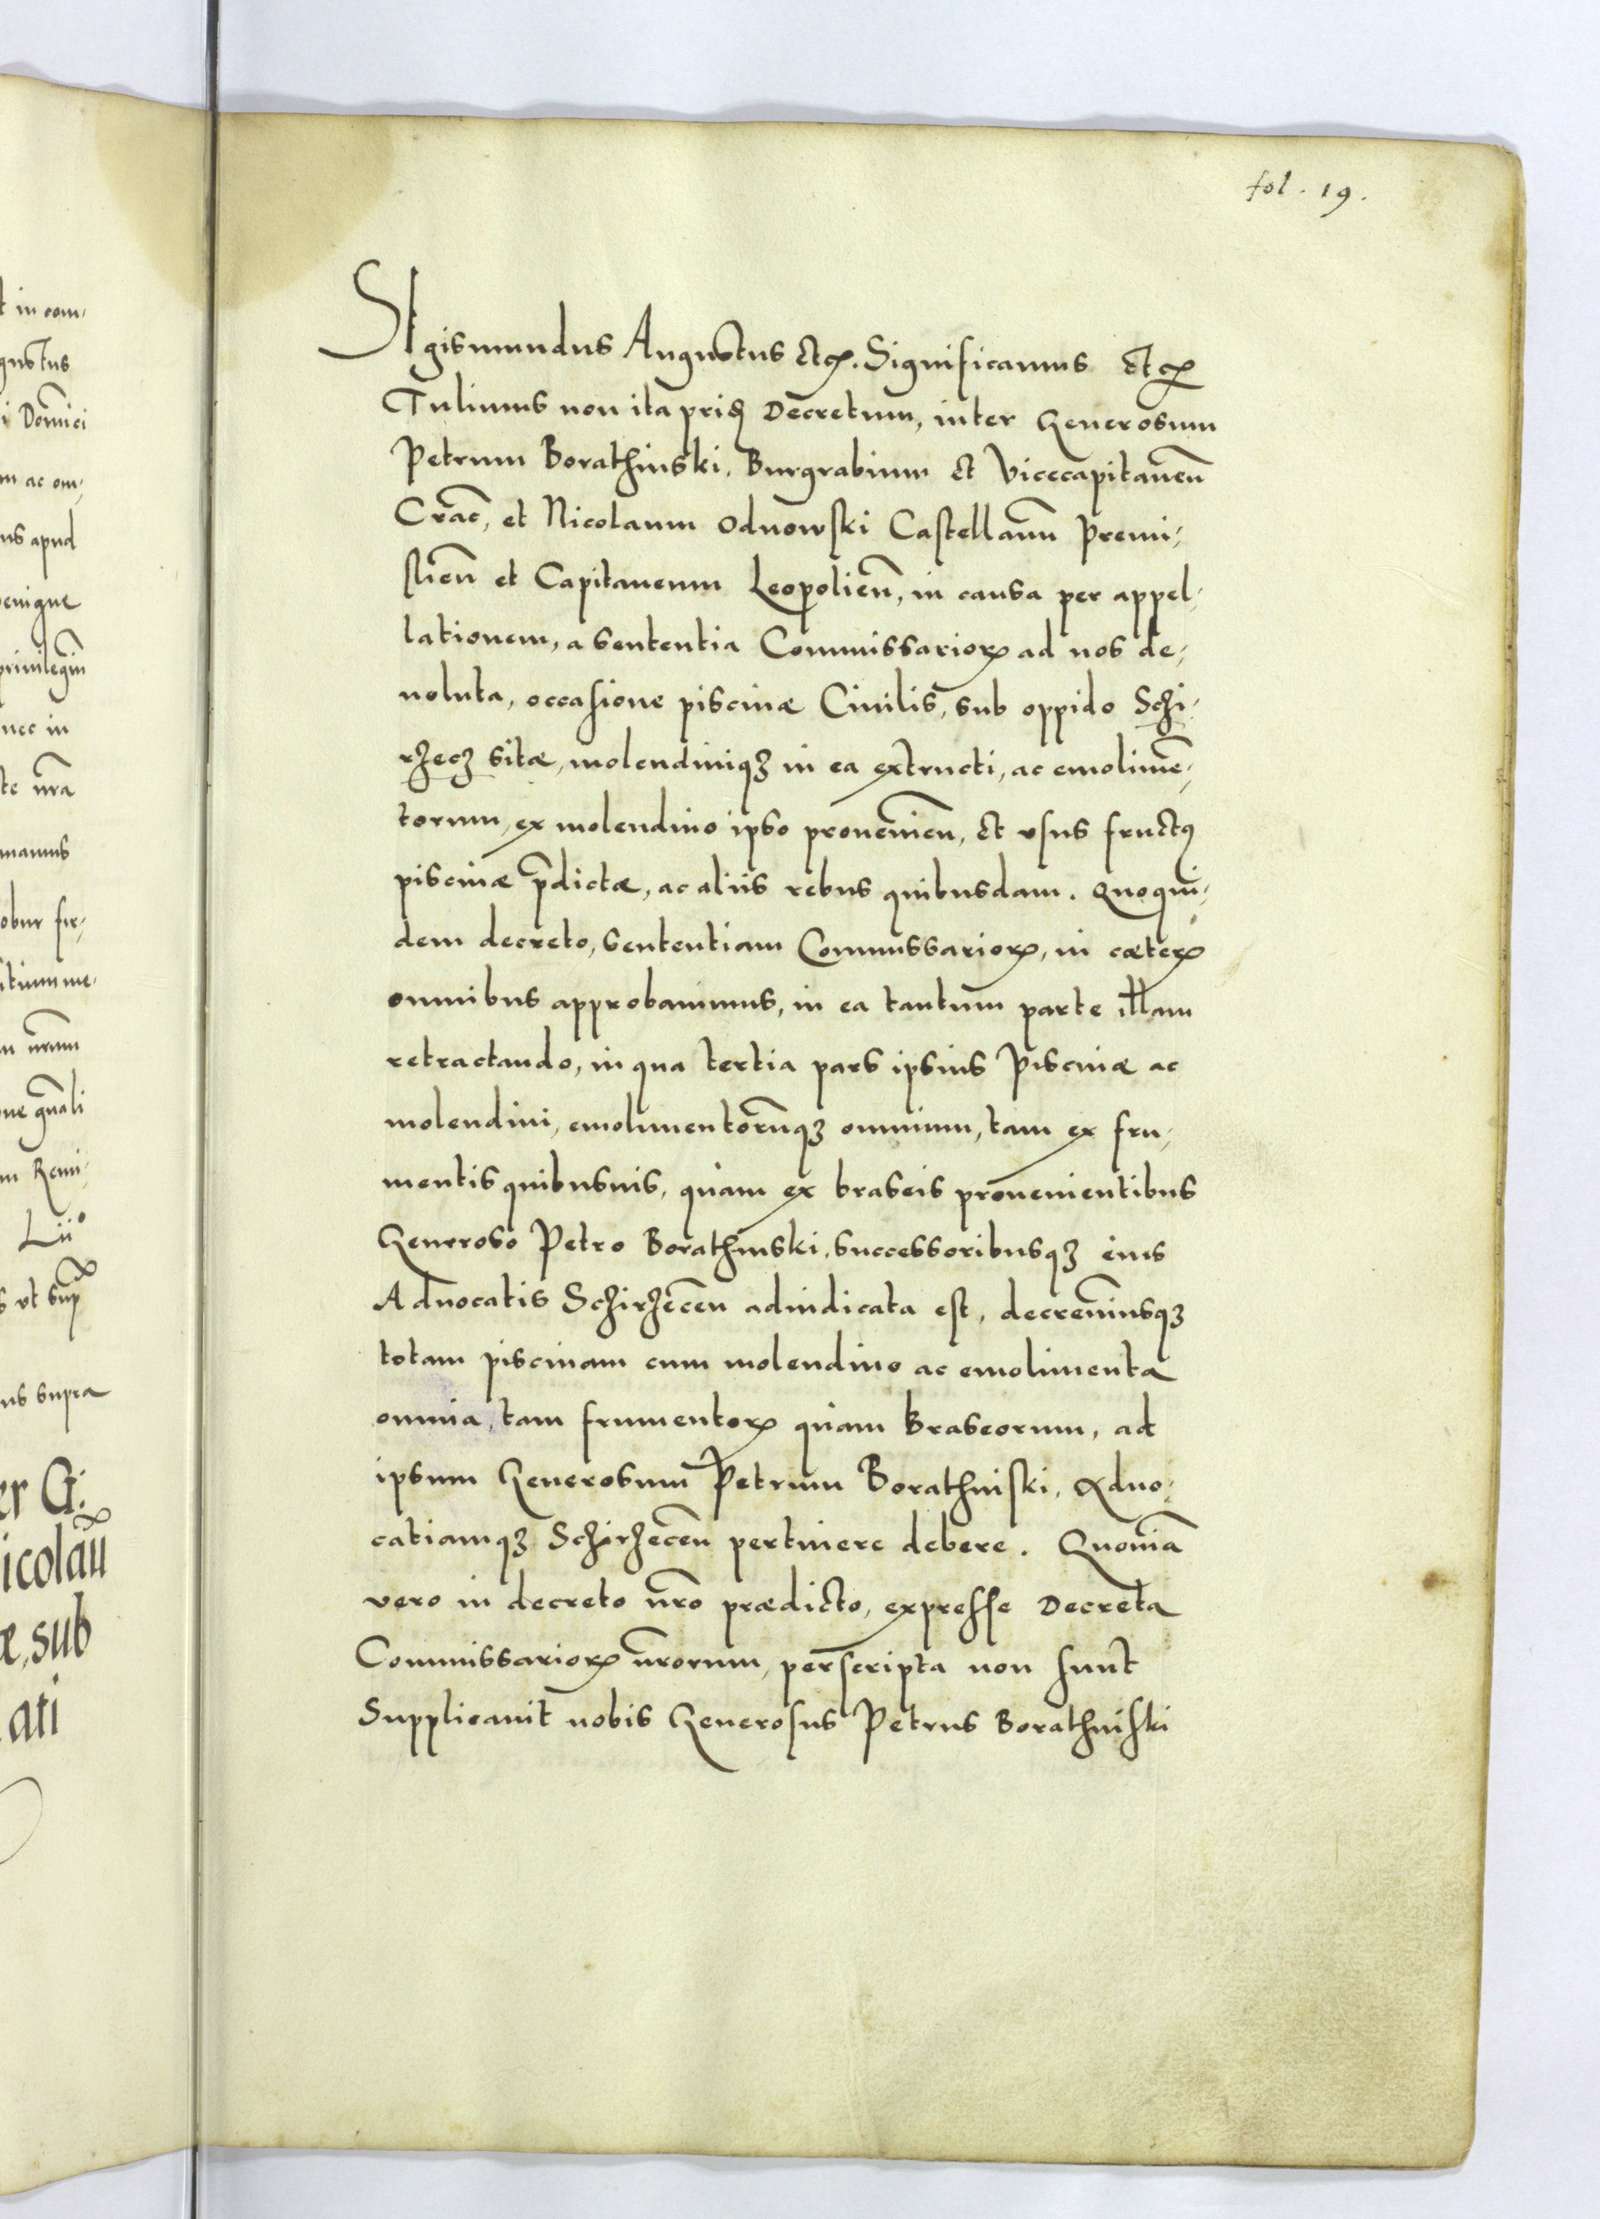 fol. 19.
SIgismundus Augustus etcꝫ. Significamus etcꝫ
Tulimus non ita priꝰ Decretum, inter Generosum
Petrum Borathinski, Burgrabium et Vicecapitaneū
Crac̄, et Nicolaum Odnowski Castellanū Premi-
slien̄ et Capitaneum Leopolien̄, in causa per appel-
lationem, a sententia Commissarioꝝ ad nos de-
uoluta, occasione piscinæ Ciuilis, sub oppido Schi-
rzecz sitæ, molendiniqꝫ in ea extructi, ac emolimē-
torum, ex molendino ipso prouenien̄, et vsus fructꝰ
piscinæ p̄dictæ, ac aliis rebus quibusdam. Quoqui-
dem decreto, sententiam Commissarioꝝ, in cæteꝝ
omnibus approbauimus, in ea tantum parte illam
retractando, in qua tertia pars ipsius Piscinæ ac
molendini, emolumentorūqꝫ omnium, tam ex fru-
mentis quibusuis, quam ex braseis prouenientibus
Generoso Petro Borathinski, successoribusqꝫ eius
Aduocatis Schirzecen̄ adiudicata est, decreuimusqꝫ
totam piscinam cum molendino ac emolimenta
omnia, tam frumentoꝝ quam braseorum, ad
ipsum Generosum Petrum Borathinski, Aduo-
catiamqꝫ Schirzecen̄ pertinere debere. Quoniā
vero in decreto nr̄o prædicto, expresse Decreta
Commissarioꝝ nr̄orum, perscripta non sunt
Supplicauit nobis Generosus Petrus Borathinski
t in com-
gustus
i Domici
m ac om-
us apud
priuilegiū
nec in
te nr̄a
obur fir-
nr̄um
ne gn̄ali
Lii°
s vt sup
us supra
er G.
icolaū
æ, sub
ati